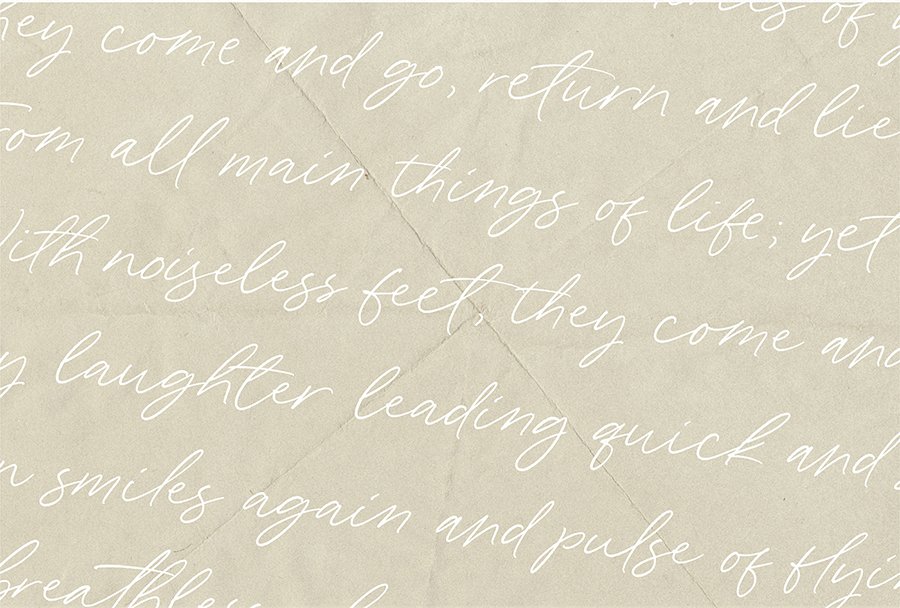 of
hey come and go, return and lie
rom all main things of life; yet
ith noiseless feet, they come and
y laughter leading quick and
n smiles again and pulse of flyin
breathless